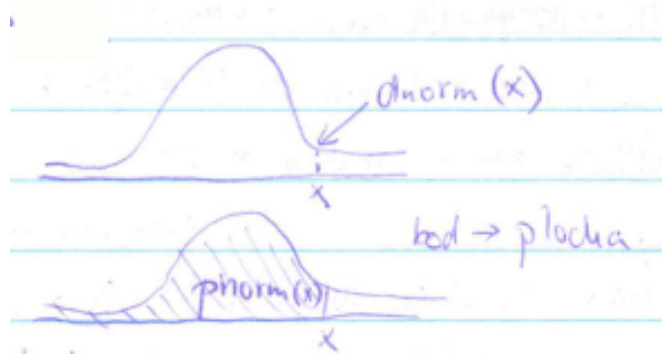 dnorm(x)
x
bod → plocha
pnorm(x)
x